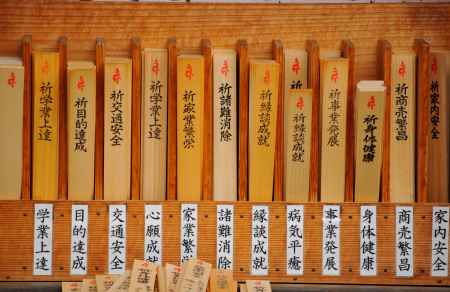 祈学業上達
祈目的達成
祈交通安全
祈学業上達
祈家業繁栄
祈諸難消除
祈縁談成就
祈
祈縁談成就
祈事業発展
祈身体健康
祈商売繁昌
祈家内安全
学業上達
目的達成
交通安全
心願成就
家業繁栄
諸難消除
縁談成就
病気平癒
事業発展
身体健康
商売繁昌
家内安全